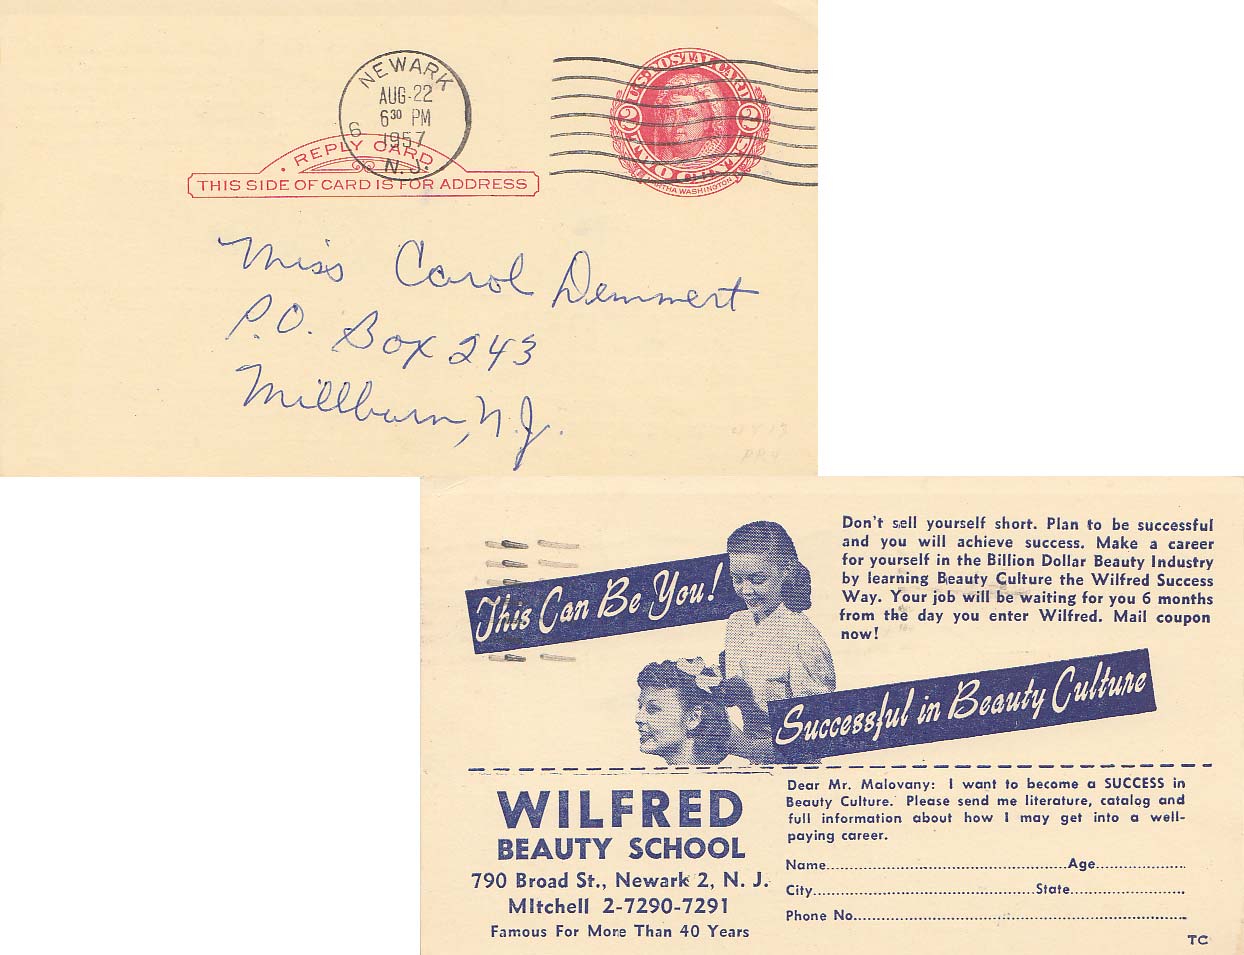 NEWARK
AUG-22
6 30 PM
1957
N. J.
6
U.S. POSTAL CARD
2
2
MARTHA WASHINGTON
REPLY CARD
THIS SIDE OF CARD IS FOR ADDRESS
Miss Carol Demmert
P.O. Box 243
Millburn, N.J.
Don't sell yourself short. Plan to be successful
and you will achieve success. Make a career
for yourself in the Billion Dollar Beauty Industry
by learning Beauty Culture the Wilfred Success
Way. Your job will be waiting for you 6 months
from the day you enter Wilfred. Mail coupon
now!
This Can Be You!
Successful in Beauty Culture
WILFRED
BEAUTY SCHOOL
790 Broad St., Newark 2, N. J.
MItchell 2-7290-7291
Famous For More Than 40 Years
Dear Mr. Malovany: I want to become a SUCCESS in
Beauty Culture. Please send me literature, catalog and
full information about how I may get into a well-
paying career.
Name Age
City State
Phone No.
TC